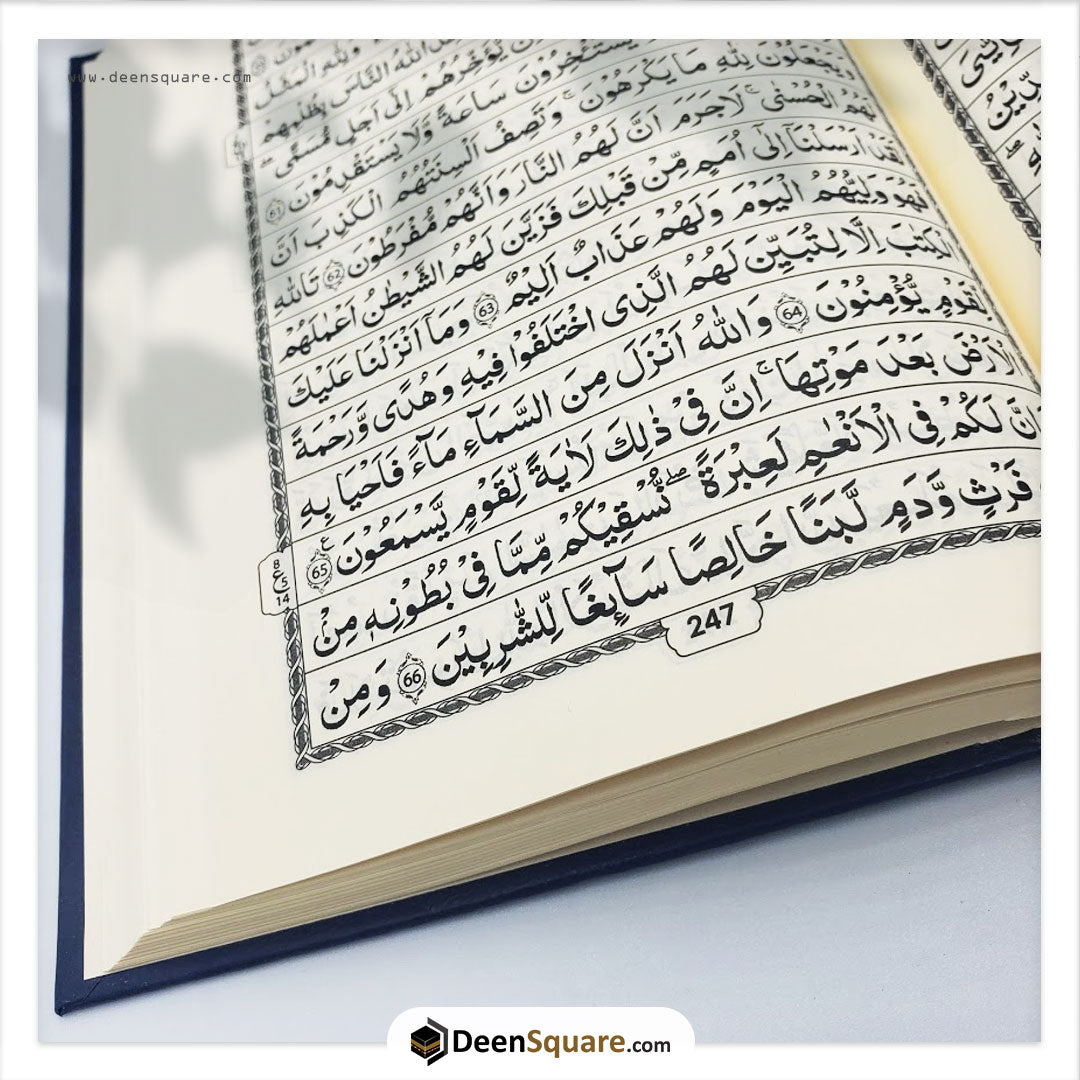 www.deensquare.com
وَلِلّٰهِ الْمَثَلُ
اللّٰهُ النَّاسَ بِظُلْمِهِمْ
يُّؤَخِّرُهُمْ اِلٰٓى اَجَلٍ مُّسَمًّى
يَسْتَأْخِرُوْنَ سَاعَةً وَّلَا يَسْتَقْدِمُوْنَ 61
وَيَجْعَلُوْنَ لِلّٰهِ مَا يَكْرَهُوْنَ وَتَصِفُ اَلْسِنَتُهُمُ الْكَذِبَ اَنَّ
لَهُمُ الْحُسْنٰى ۚ لَاجَرَمَ اَنَّ لَهُمُ النَّارَ وَاَنَّهُمْ مُّفْرَطُوْنَ 62 تَاللّٰهِ
لَقَدْ اَرْسَلْنَآ اِلٰٓى اُمَمٍ مِّنْ قَبْلِكَ فَزَيَّنَ لَهُمُ الشَّيْطٰنُ اَعْمٰلَهُمْ
فَهُوَ وَلِيُّهُمُ الْيَوْمَ وَلَهُمْ عَذَابٌ اَلِيْمٌ 63 وَمَآ اَنْزَلْنَا عَلَيْكَ
الْكِتٰبَ اِلَّا لِتُبَيِّنَ لَهُمُ الَّذِى اخْتَلَفُوْا فِيْهِ وَهُدًى وَّرَحْمَةً
لِّقَوْمٍ يُّؤْمِنُوْنَ 64 وَاللّٰهُ اَنْزَلَ مِنَ السَّمَآءِ مَآءً فَاَحْيَا بِهِ
الْاَرْضَ بَعْدَ مَوْتِهَا ۚ اِنَّ فِىْ ذٰلِكَ لَاٰيَةً لِّقَوْمٍ يَّسْمَعُوْنَ 65
وَاِنَّ لَكُمْ فِى الْاَنْعٰمِ لَعِبْرَةً ۖ نُّسْقِيْكُمْ مِّمَّا فِىْ بُطُوْنِهٖ مِنْ
فَرْثٍ وَّدَمٍ لَّبَنًا خَالِصًا سَآئِغًا لِّلشّٰرِبِيْنَ 66 وَمِنْ
8
ع 5
14
247
DeenSquare.com